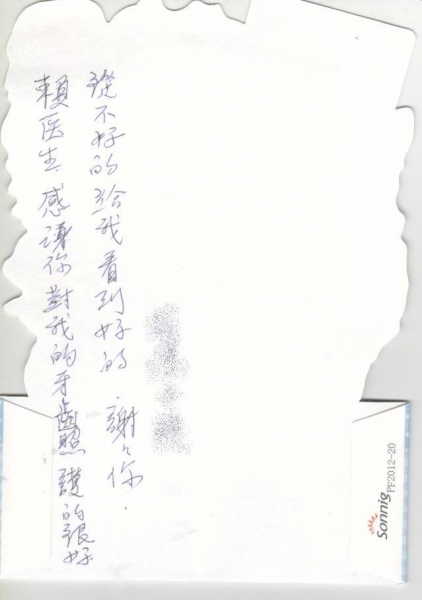 賴医生 感謝你對我的牙齒照護的很好
從不好的給我看到好的 謝々你.
sonnig PF2012-20